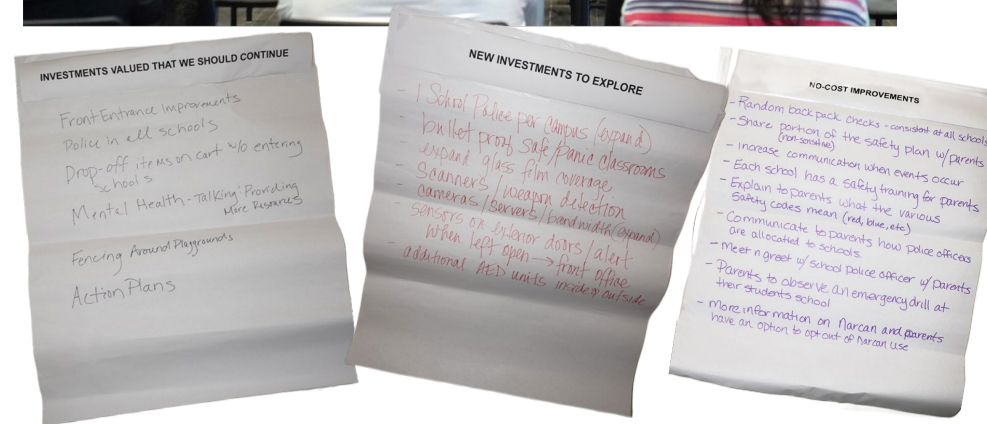 INVESTMENTS VALUED THAT WE SHOULD CONTINUE
Front Entrance Improvements
Police in all schools
Drop-off items on cart w/o entering
schools
Mental Health - Talking Providing
More Resources
Fencing Around Playgrounds
Action Plans
NEW INVESTMENTS TO EXPLORE
- 1 School Police per campus (expand)
- bullet proof safe/panic classrooms
- expand glass film coverage
- Scanners / weapon detection
- cameras/servers/bandwidth (expand)
- sensors on exterior doors/alert
when left open → front office
- additional AED units inside & outside
NO-COST IMPROVEMENTS
- Random back pack checks - consistent at all schools
- Share portion of the safety plan w/ parents
(non-sensitive)
- Increase communication when events occur
- Each school has a safety training for parents
- Explain to parents what the various
Safety codes mean (red, blue, etc)
- Communicate to parents how police officers
are allocated to schools.
- Meet n greet w/ school police officer w/ parents
- Parents to observe an emergency drill at
their students school
- More information on Narcan and parents
have an option to opt out of Narcan Use